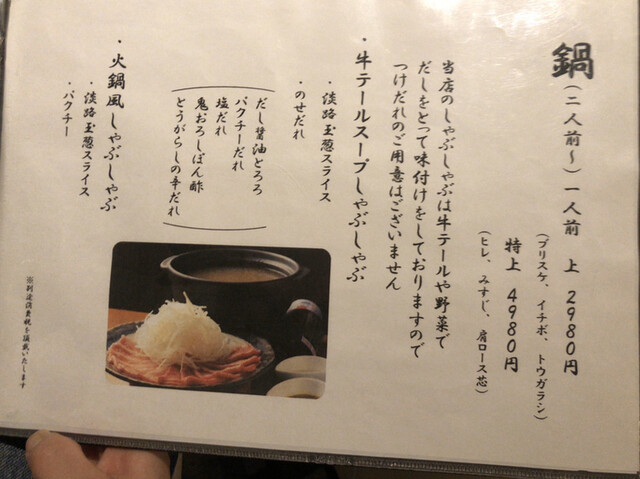 鍋(二人前〜)一人前 上 2980円
(ブリスケ、イチボ、トウガラシ)
特上 4980円
(ヒレ、みすじ、肩ロース芯)
当店のしゃぶしゃぶは牛テールや野菜で
だしをとって味付けをしておりますので
つけだれのご用意はございません
・牛テールスープしゃぶしゃぶ
・淡路玉葱スライス
・のせだれ
だし醤油とろろ
パクチーだれ
塩だれ
鬼おろしぽん酢
とうがらしの辛だれ
・火鍋風しゃぶしゃぶ
・淡路玉葱スライス
・パクチー
※別途消費税を頂戴いたします